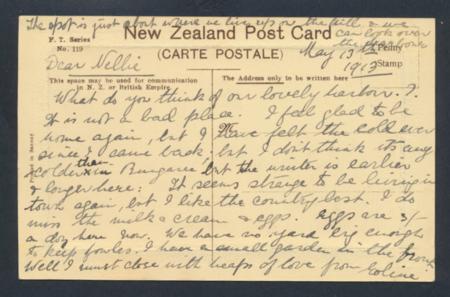 The spot is just about where we live up on the hill & we
can look over
New Zealand Post Card
F. T. Series
No. 119
(CARTE POSTALE)
May 13th
1913
Penny
Stamp
Dear Nellie
This space may be used for communication
in N. Z. or British Empire
The Address only to be written here
What do you think of our lovely harbour.?
It is not a bad place. I feel glad to be
home again, but I have felt the cold ever
since I came back. but I don't think its any
colder than in Bungaree but the winter is earlier
& longer here. It seems strange to be living in
town again, but I like the country best. I do
miss the milk & cream & eggs. eggs are 3/-
a doz here now. We have no yard big enough
to keep fowles. I have a small garden in the front
Well I must close with heaps of love from